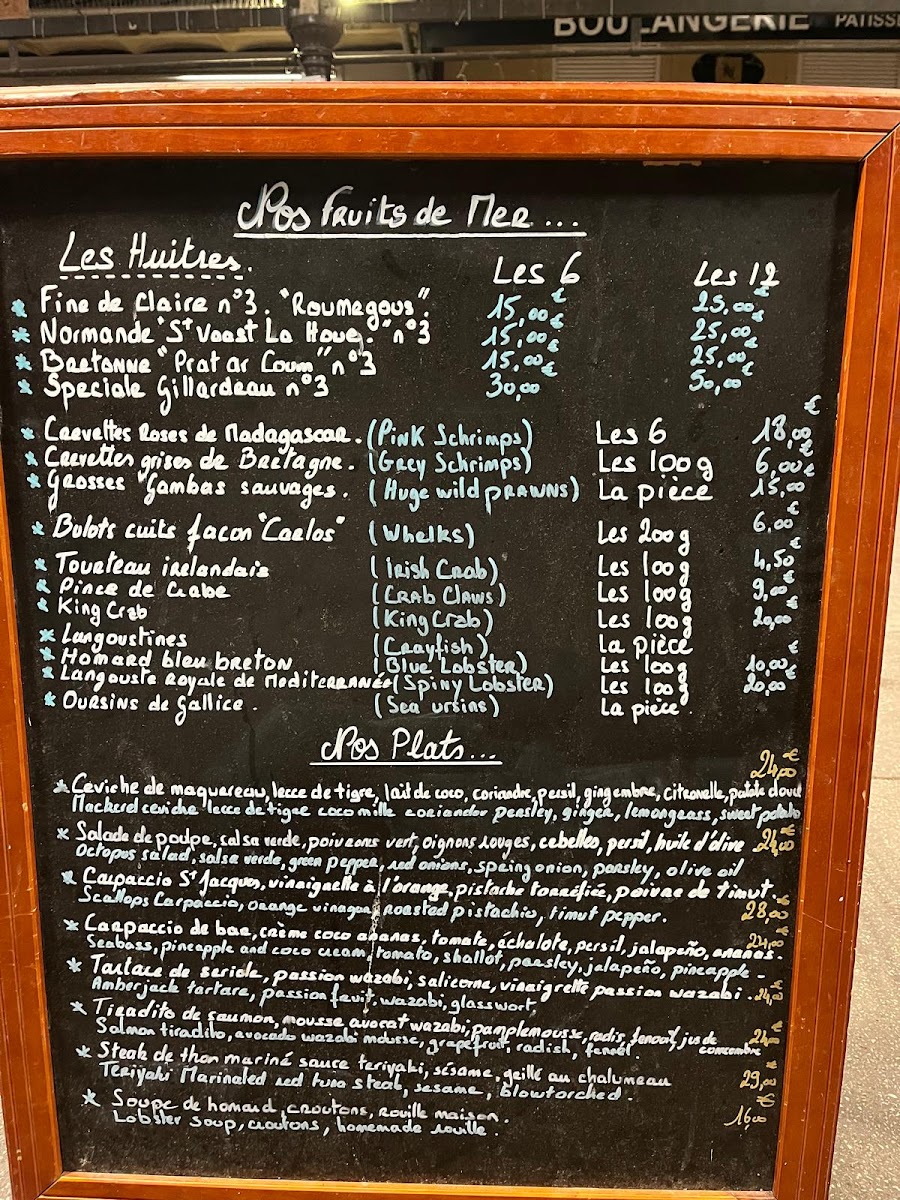 BOULANGERIE PATISS
Nos Fruits de Mer...
Les Huitres. Les 6 Les 12
* Fine de Claire n°3. "Roumegous". 15,00€ 25,00€
* Normande "St Vaast La Houg." n°3 15,00€ 25,00€
* Bretonne "Prat ar Coum" n°3 15,00€ 25,00€
* Speciale Gillardeau n°3 30,00€ 50,00€
* Crevettes Roses de Madagascar. (Pink Schrimps) Les 6 18,00€
* Crevettes grises de Bretagne. (Grey Schrimps) Les 100g 6,00€
* Grosses "Gambas sauvages. (Huge wild prawns) La pièce 15,00€
* Bulots cuits façon "Carlos" (Whelks) Les 200g 6,00€
* Tourteau irelandais (Irish Crab) Les 100g 4,50€
* Pince de Crabe (Crab Claws) Les 100g 9,00€
* King Crab (King Crab) Les 100g 20,00€
* Langoustines (Crayfish) La pièce
* Homard bleu breton (Blue Lobster) Les 100g 10,00€
* Langouste Royale de Mediterranée (Spiny Lobster) Les 100g 20,00€
* Oursins de Gallice. (Sea Urcins) La pièce.
Nos Plats...
24,00€
* Ceviche de maquereau, lecce de tigre, lait de coco, coriandre, persil, gingembre, citronelle, patate douce
Mackerel ceviche lecce de tigre coco milk coriander peasley, ginger, lemongrass, sweet potato
* Salade de poulpe, salsa verde, poivrons vert, oignons rouges, cebettes, persil, huile d'olive 24,00€
Octopus salad, salsa verde, green pepper, red onions, spring onion, parsley, olive oil
* Carpaccio St Jacques, vinaigrette à l'orange, pistache torréfiée, poivre de timut.
Scallops Carpaccio, orange vinagre, roasted pistachio, timut pepper. 28,00€
* Carpaccio de bar, crème coco ananas, tomate, échalote, persil, jalapeño, ananas. 24,00€
Seabass, pineapple and coco cream, tomato, shallot, parsley, jalapeño, pineapple -
* Tartare de seriole, passion wazabi, salicorne, vinaigrette passion wazabi. 24,00€
Amberjack tartare, passion fruit, wazabi, glasswort,
* Tiradito de saumon, mousse avocat wazabi, pamplemousse, radis, fenouil, jus de concombre 24,00€
Salmon tiradito, avocado wazabi mousse, grapefruit, radish, fenoel.
* Steak de thon mariné sauce teriyaki, sésame, grillé au chalumeau
Teriyaki Marinated red tuna steak, sesame, blowtorched. 29,00€
* Soupe de homard, croutons, rouille maison.
Lobster soup, croutons, homemade rouille. 16,00€